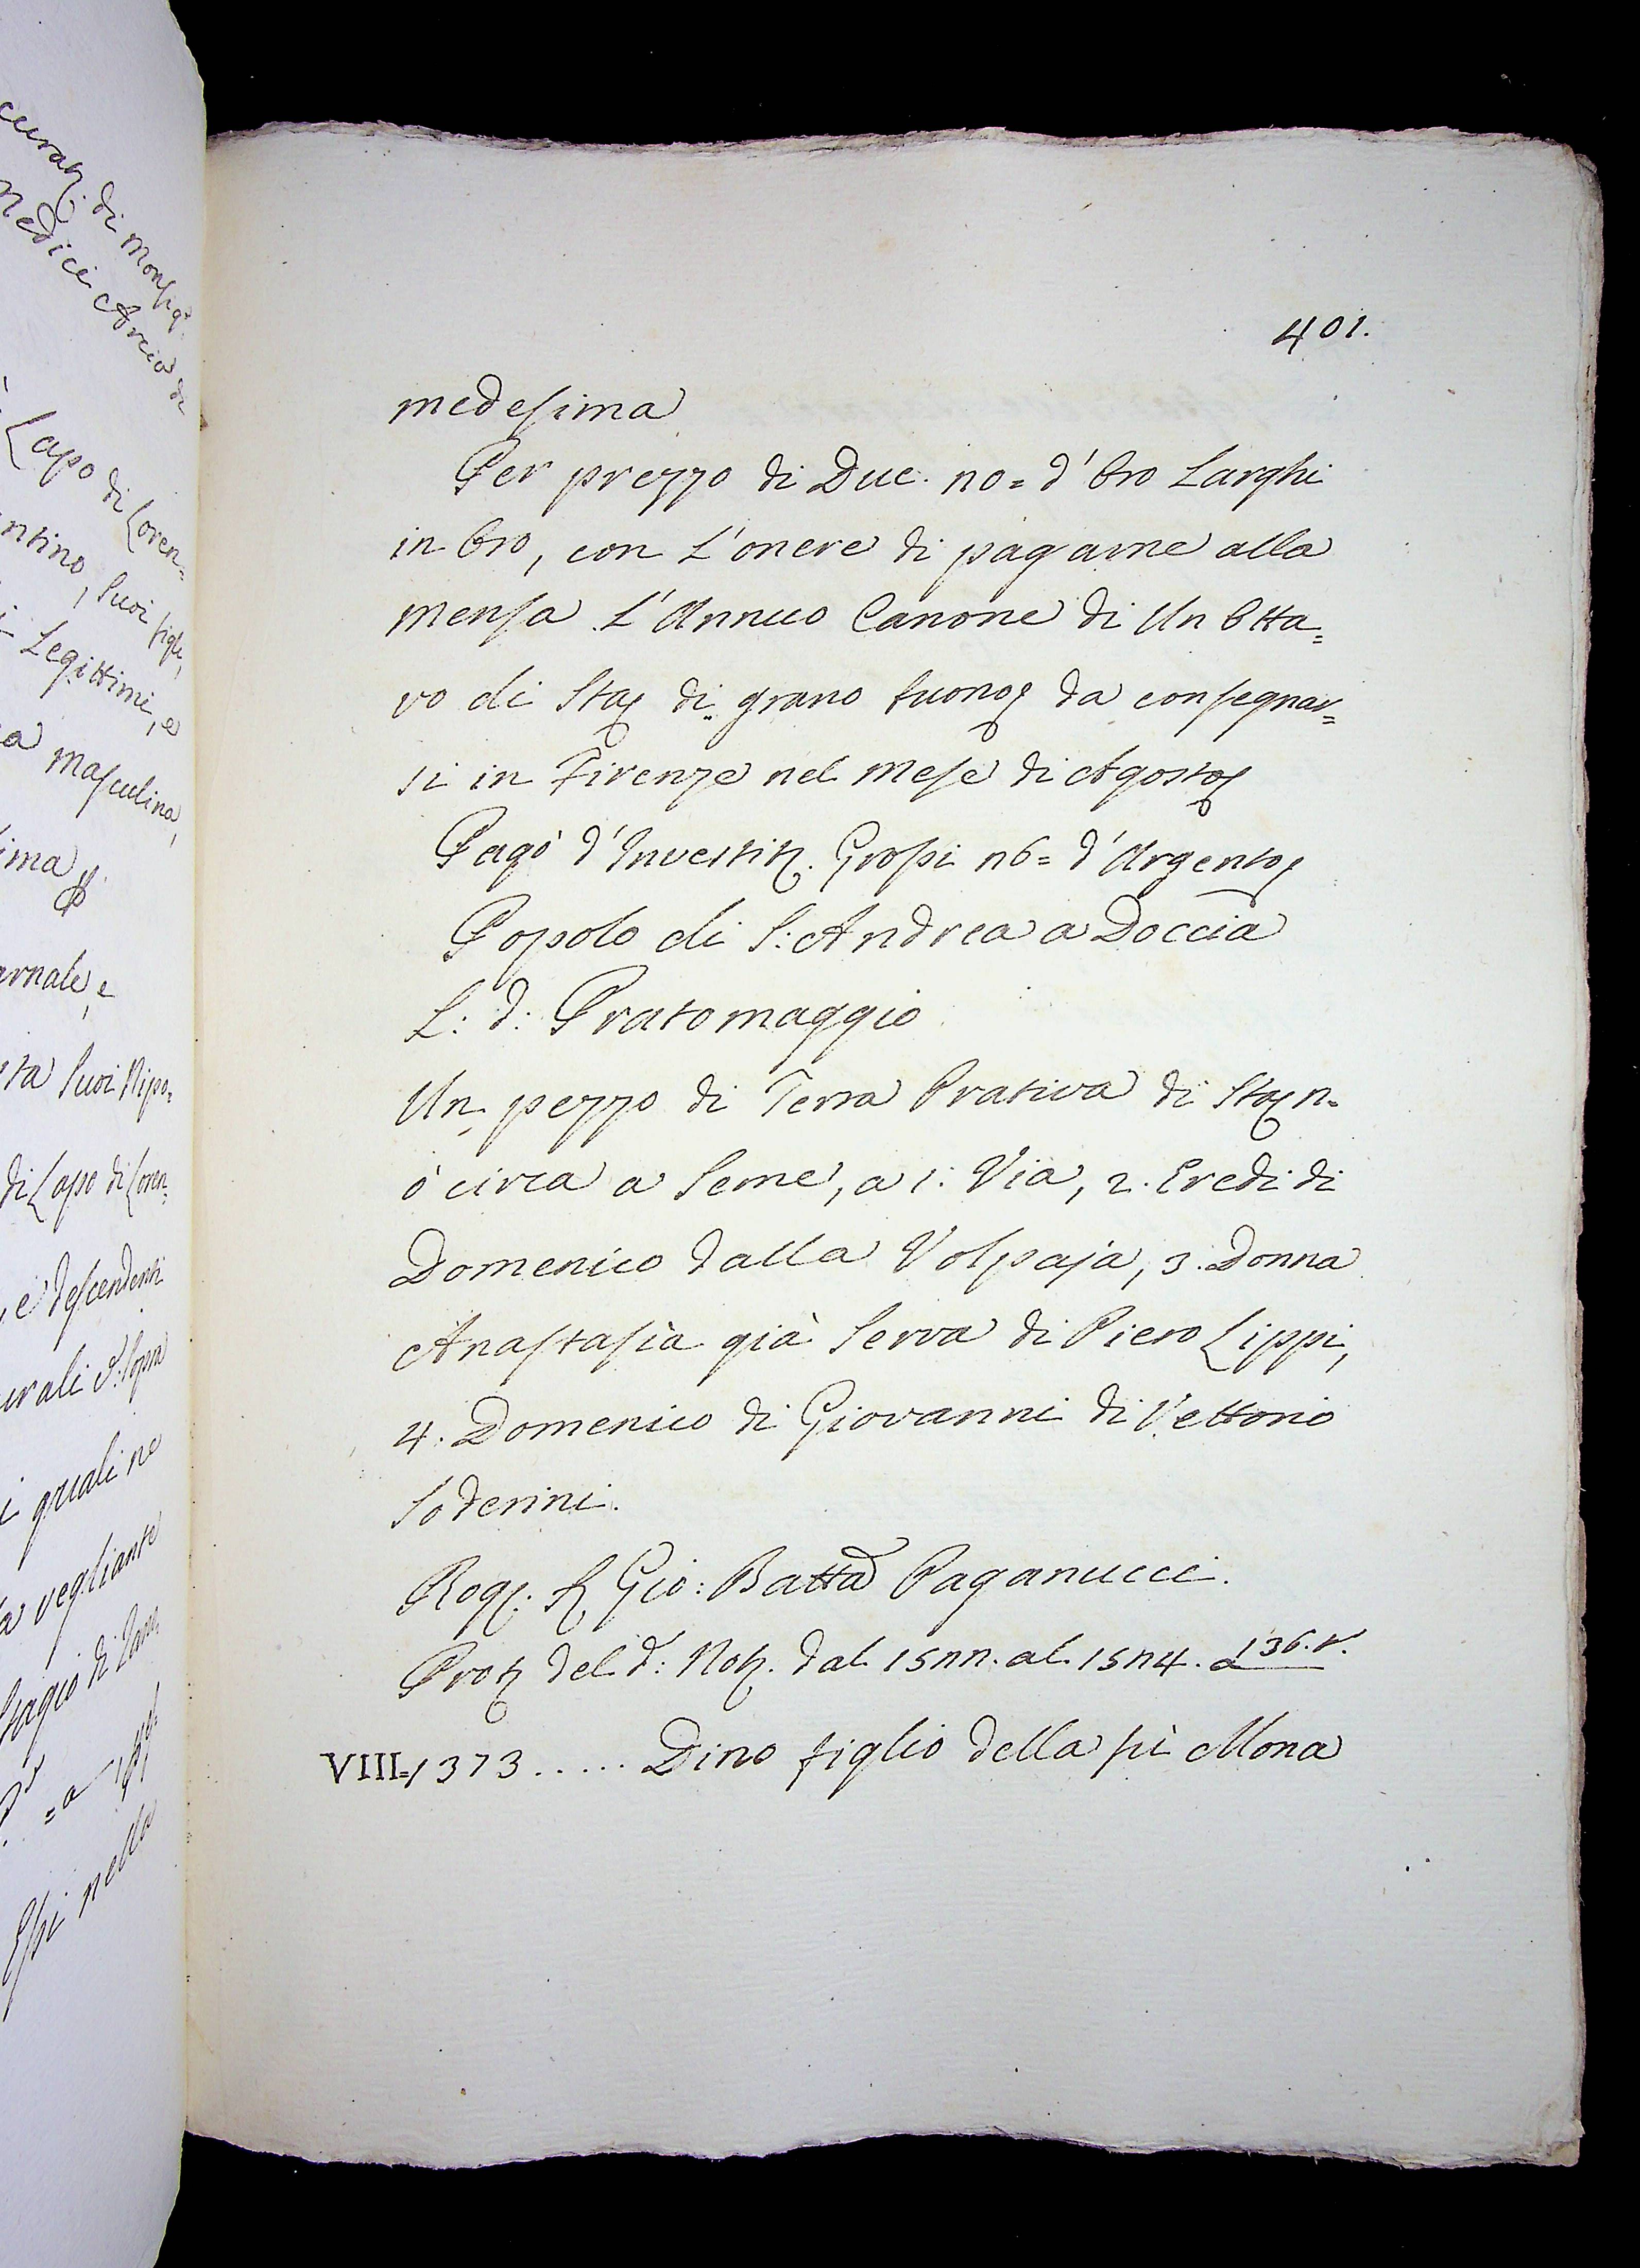 di Monsigr.
Medici Arcio di
Lapo di Loren=
ntino, Suoi figli,
i Legittimi, e
a Masculina,
ima
rnale, e
sta Suoi Nipo=
di Lapo di Loren=
, e descendenti
urali d: Sopra
i quali ne
a vegliante
Stagio di Dan.
Essi nella
401.
medesima
Per prezzo di Duc. 20= d'Oro Larghi
in Oro, con L'onere di pagarne alla
Mensa L'Annuo Canone di Un Otta=
vo di Staj di grano buono da consegnar=
si in Firenze nel Mese di Agosto
Pagò d'Investitz. Grossi 26= d'Argento
Popolo di S: Andrea a Doccia
L: d: Pratomaggio
Un pezzo di Terra Prativa di Staj 2=
ò circa a Seme, a 1. Via, 2. Eredi di
Domenico dalla Volpaja, 3. Donna
Anastasìa già Serva di Piero Lippi,
4. Domenico di Giovanni di Vettorio
Soderini.
Rog: S. Gio: Batta Paganucci.
Prot. del d: Not. dal 1522. al 1524. a 136. r.
VIII=1373..... Dino figlio della fù Mona